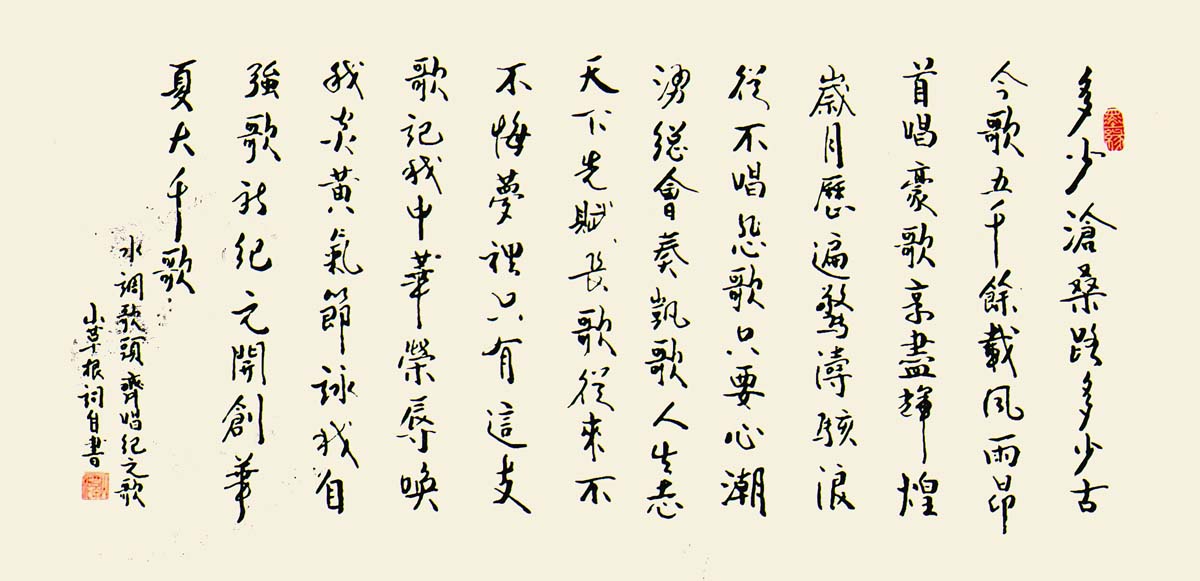 多少滄桑路多少古
今歌五千餘載風雨昂
首唱豪歌享盡輝煌
歲月歷遍驚濤駭浪
從不唱悲歌只要心潮
湧總會奏凱歌人生志
天下先賦長歌從來不
不悔夢裡只有這支
歌記我中華榮辱喚
我炎黃氣節詠我自
強歌新紀元開創華
夏大千歌
水調歌頭齊唱紀元歌
小草根詞自書